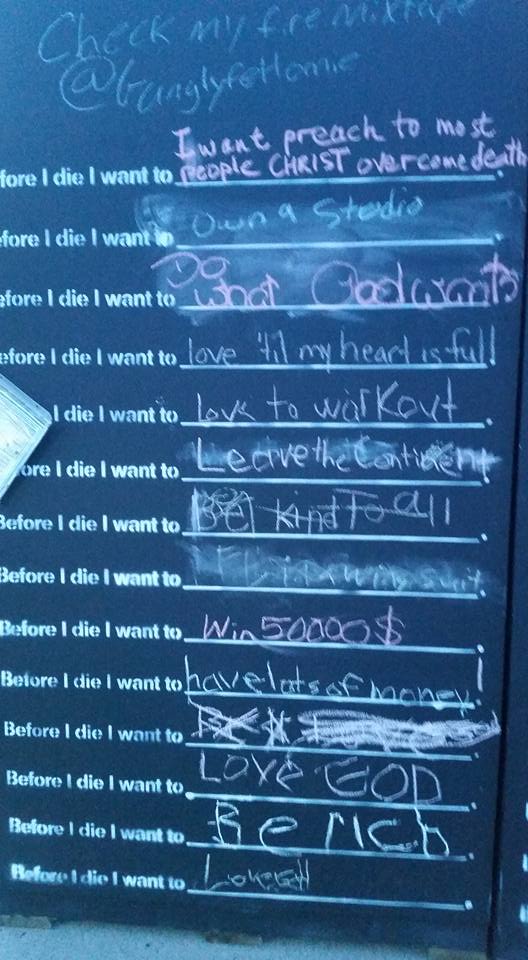 Check my fire mixtape
I want preach to most
fore I die I want to people CHRIST overcome death.
efore I die I want to own a Studio
Do
efore I die I want to what God wants
efore I die I want to love 'til my heart is full!
I die I want to Love to warkout.
ore I die I want to Leave the Continent.
Before I die I want to Be kind To all.
Before I die I want to Fly in a wing suit.
Before I die I want to Win 50000$.
Before I die I want to have lots of money!
Before I die I want to
Before I die I want to LOVE GOD.
Before I die I want to Be rich.
Before I die I want to